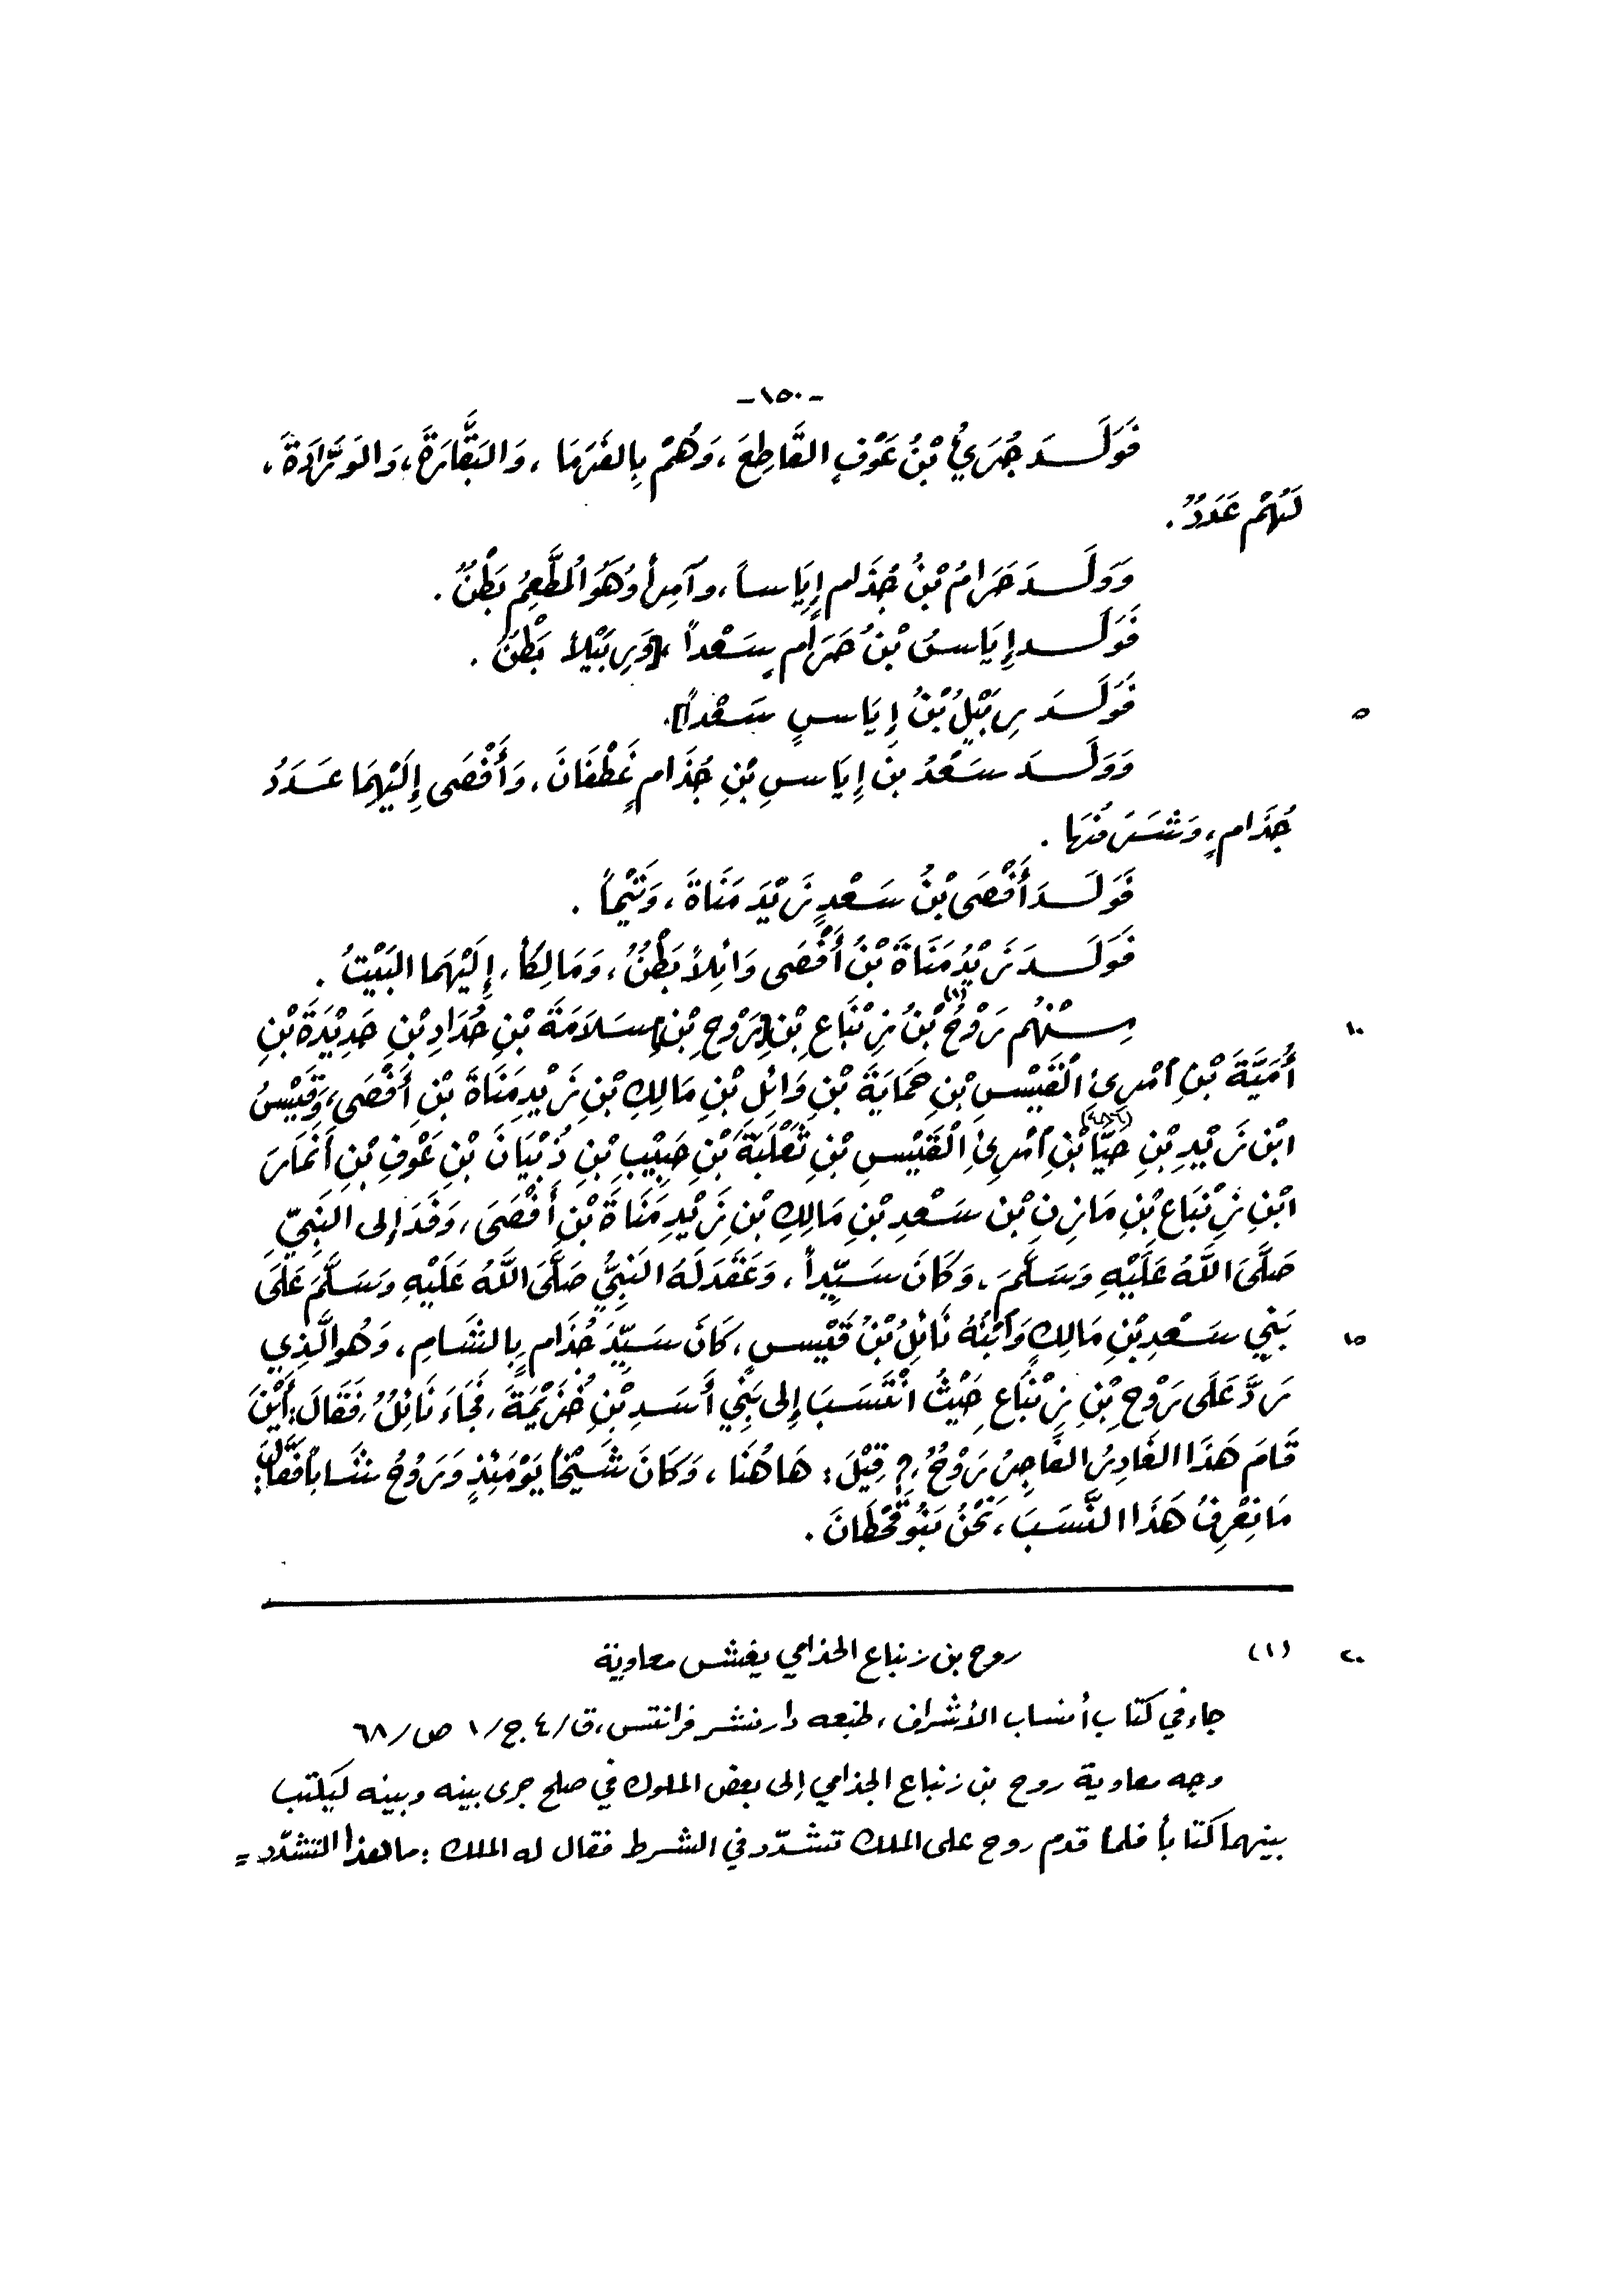 -١٥٠-
فَوَلَدَ جُرَيُّ بْنُ عَوْفٍ القَاطِعَ، وَهُمْ بِالفَرَمَا، وَالبَقَّارَةِ، وَالوَرَّادَةِ،
لَهُمْ عَدَدٌ.
وَوَلَدَ حَرَامُ بْنُ جُذَامٍ إِيَاساً، وَآمِراً وَهُوَ المُطَّعِمُ بَطْنٌ.
فَوَلَدَ إِيَاسُ بْنُ حَرَامٍ سَعْداً، [وَرِبَيْلاً بَطْنٌ.
فَوَلَدَ رِبَيْلُ بْنُ إِيَاسٍ سَعْداً].
٥
وَوَلَدَ سَعْدُ بنُ إِيَاسِ بْنِ جُذَامٍ غَطْفَانَ، وَأَفْصَى إِلَيْهِمَا عَدَدُ
جُذَامٍ، وَشَرَفُهَا.
فَوَلَدَ أَفْصَى بْنُ سَعْدٍ زَيْدَ مَنَاةَ، وَتَيْماً.
فَوَلَدَ زَيْدُ مَنَاةَ بْنُ أَفْصَى وَائِلاً بَطْنٌ، وَمَالِكاً، إِلَيْهِمَا البَيْتُ.
مِنْهُم رَوْحُ (١) بْنُ زِنْبَاعِ بْنِ [رَوْحِ بْنِ] سَلَامَةَ بْنِ حُدَادِ بْنِ حَدِيْدَةَ بْنِ
١٠
أُمَيَّةَ بْنِ امْرِئِ الْقَيْسِ بْنِ حَمَايَةَ بْنِ وَائِلِ بْنِ مَالِكِ بْنِ زَيْدِ مَنَاةَ بْنِ أَفْصَى، وَقَيْسُ
ابْنُ زَيْدِ بْنِ حَيَّا بْنِ امْرِئِ الْقَيْسِ بْنِ ثَعْلَبَةَ بْنِ حَبِيْبِ بْنِ ذُبْيَانَ بْنِ عَوْفِ بْنِ أَنْمَارَ
ابْنِ زِنْبَاعِ بْنِ مَازِنِ بْنِ سَعْدِ بْنِ مَالِكِ بْنِ زَيْدِ مَنَاةَ بْنِ أَفْصَى، وَفَدَ إِلى النَبِيِّ
صَلَّى اللَّهُ عَلَيْهِ وَسَلَّمَ، وَكَانَ سَيِّداً، وَعَقَدَ لَهُ النَبِيُّ صَلَّى اللَّهُ عَلَيْهِ وَسَلَّمَ عَلَى
بَنِي سَعْدِ بْنِ مَالِكٍ وَابْنُهُ نَائِلُ بْنُ قَيْسٍ، كَانَ سَيِّدَ جُذَامٍ بِالشَّامِ، وَهُوَ الَّذِي
١٥
رَدَّ عَلَى رَوْحِ بْنِ زِنْبَاعِ حَيْثُ انْتَسَبَ إِلى بَنِي أَسَدِ بْنِ خُزَيْمَةَ، فَجَاءَ نَائِلُ، فَقَالَ: أَيْنَ
قَامَ هَذَا الغَادِرُ الفَاجِرُ رَوْحُ؟ قِيْلَ: هَاهُنَا، وَكَانَ شَيْخاً يَوْمَئِذٍ وَرَوْحُ شَاباً فَقَالَ:
مَا نَعْرِفُ هَذَا النَّسَبَ، نَحْنُ بَنُو قَحْطَانَ.
(١) روح بن زنباع الجذامي يغش معاوية
٢٠
جاء في كتاب أنساب الأشراف، طبعه دار نشر فرانتس، ق/٤ ج/١ ص/٦٨
وجه معاوية روح بن زنباع الجذامي إلى بعض الملوك في صلح جرى بينه وبينه ليكتب
بينهما كتاباً فلما قدم روح على الملك تشدّد في الشرط فقال له الملك: ما هذا التشدّد =